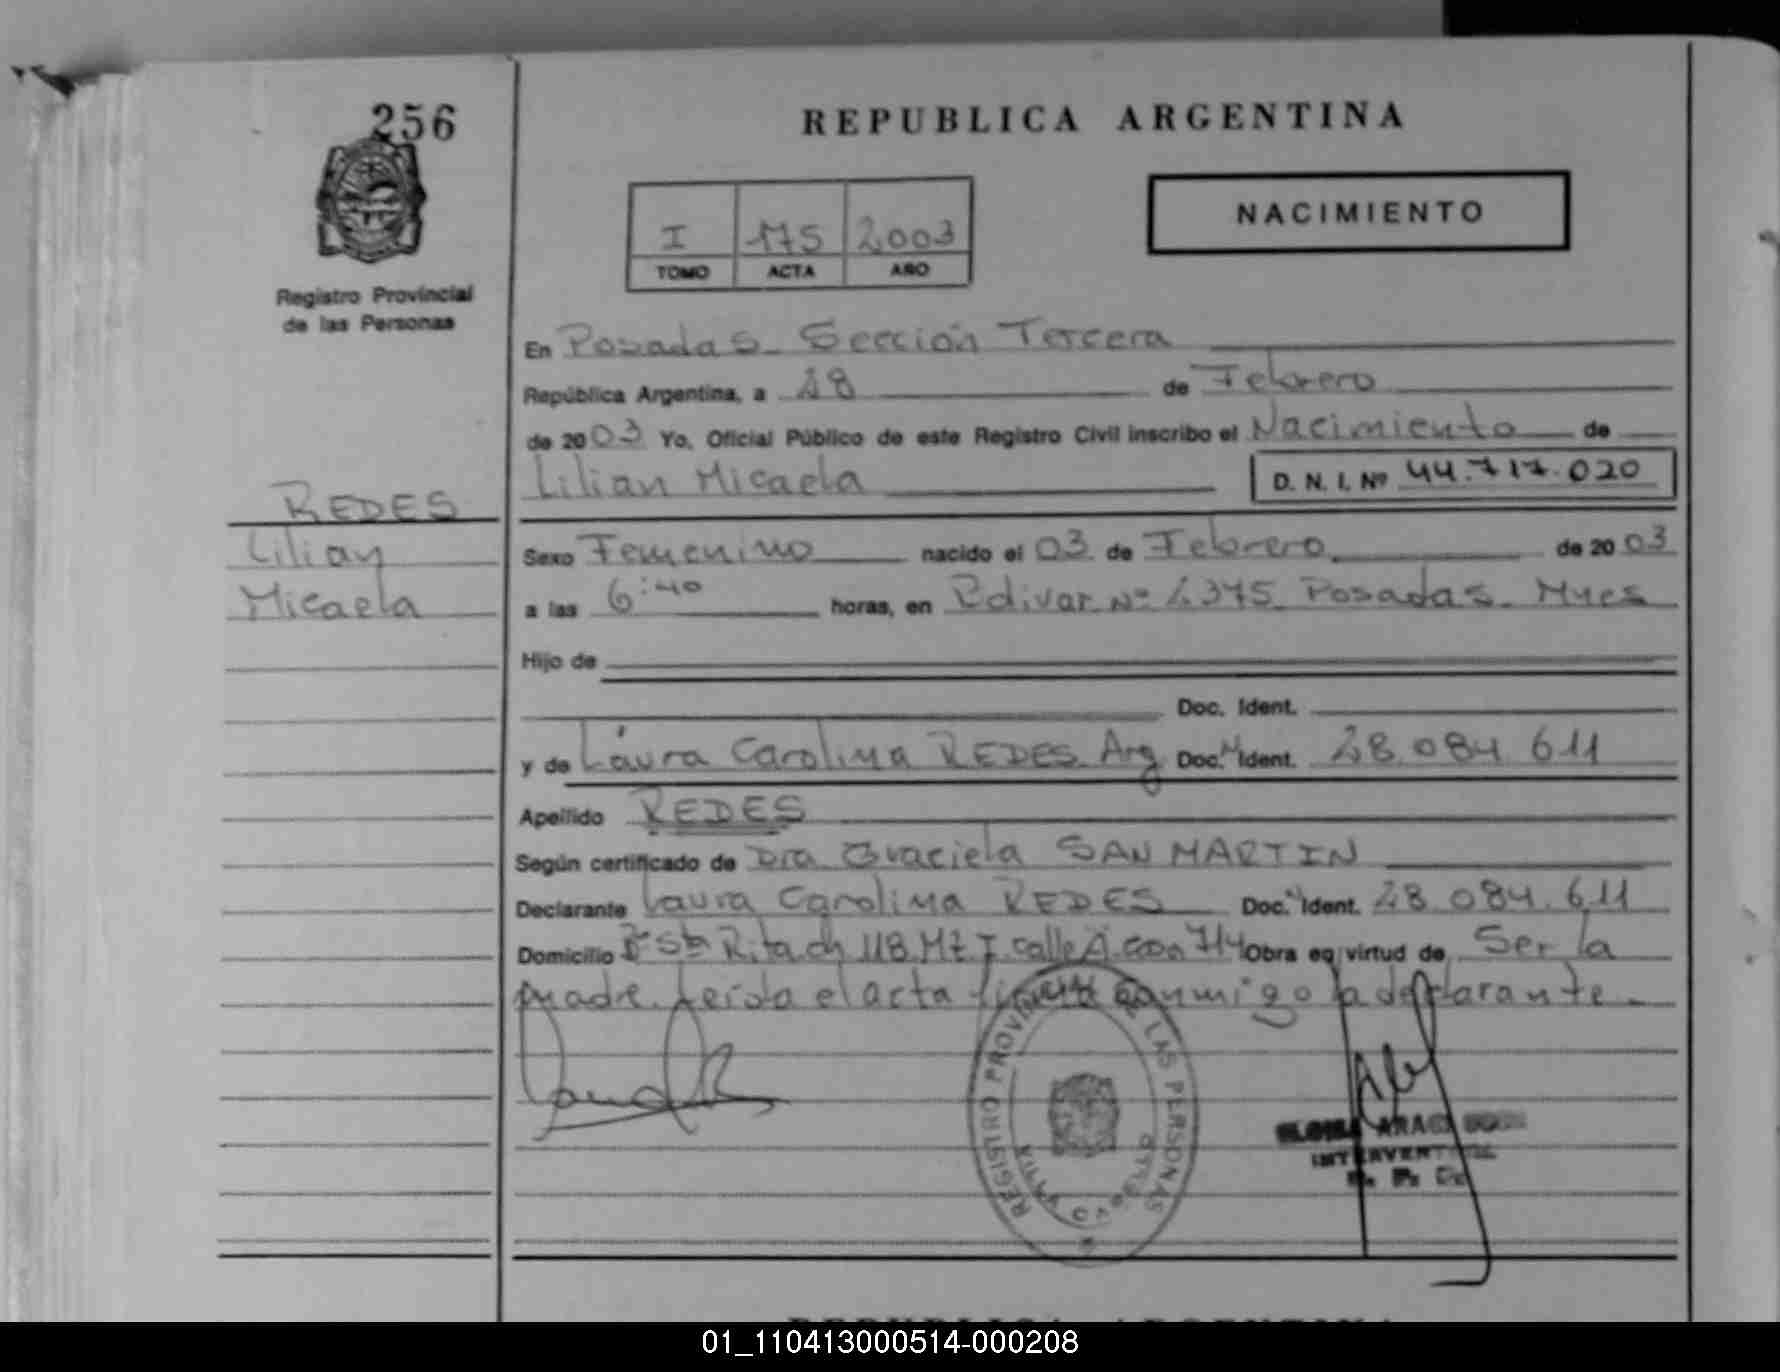 256
REPUBLICA ARGENTINA
NACIMIENTO
I 175 2003
TOMO ACTA AÑO
Registro Provincial
de las Personas
En Posadas Sección Tercera
República Argentina, a 28 de Febrero
de 2003 Yo, Oficial Público de este Registro Civil inscribo el Nacimiento de
Lilian Micaela D. N. I. Nº 44.717.020
REDES
Lilian
Micaela
Sexo Femenino nacido el 03 de Febrero de 2003
a las 6:40 horas, en Bolivar Nº 2375 Posadas Mnes
Hijo de
Doc. Ident.
y de Laura Carolina REDES Arg Doc. Ident. 28.084.611
Apellido REDES
Según certificado de Dra Graciela SAN MARTIN
Declarante Laura Carolina REDES Doc. Ident. 28.084.611
Domicilio Bº Sta Rita ch 118 Mz I calle A con 714 Obra en virtud de Ser la
madre. Leída el acta firma conmigo la declarante.
REGISTRO PROVINCIAL DE LAS PERSONAS
VILLA CABELLO
REPUBLICA ARGENTINA
01_110413000514-000208